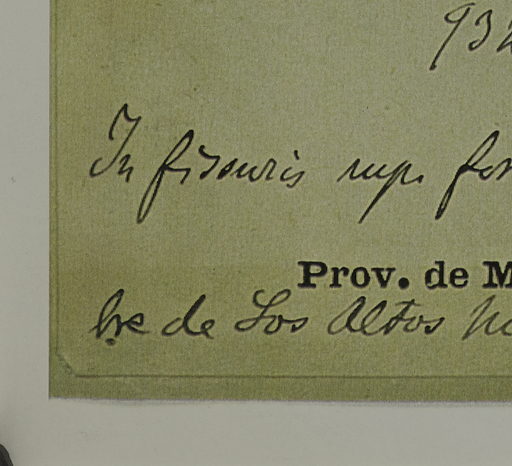 932
In fissuris rup. for
Prov. de M
de Los Altos